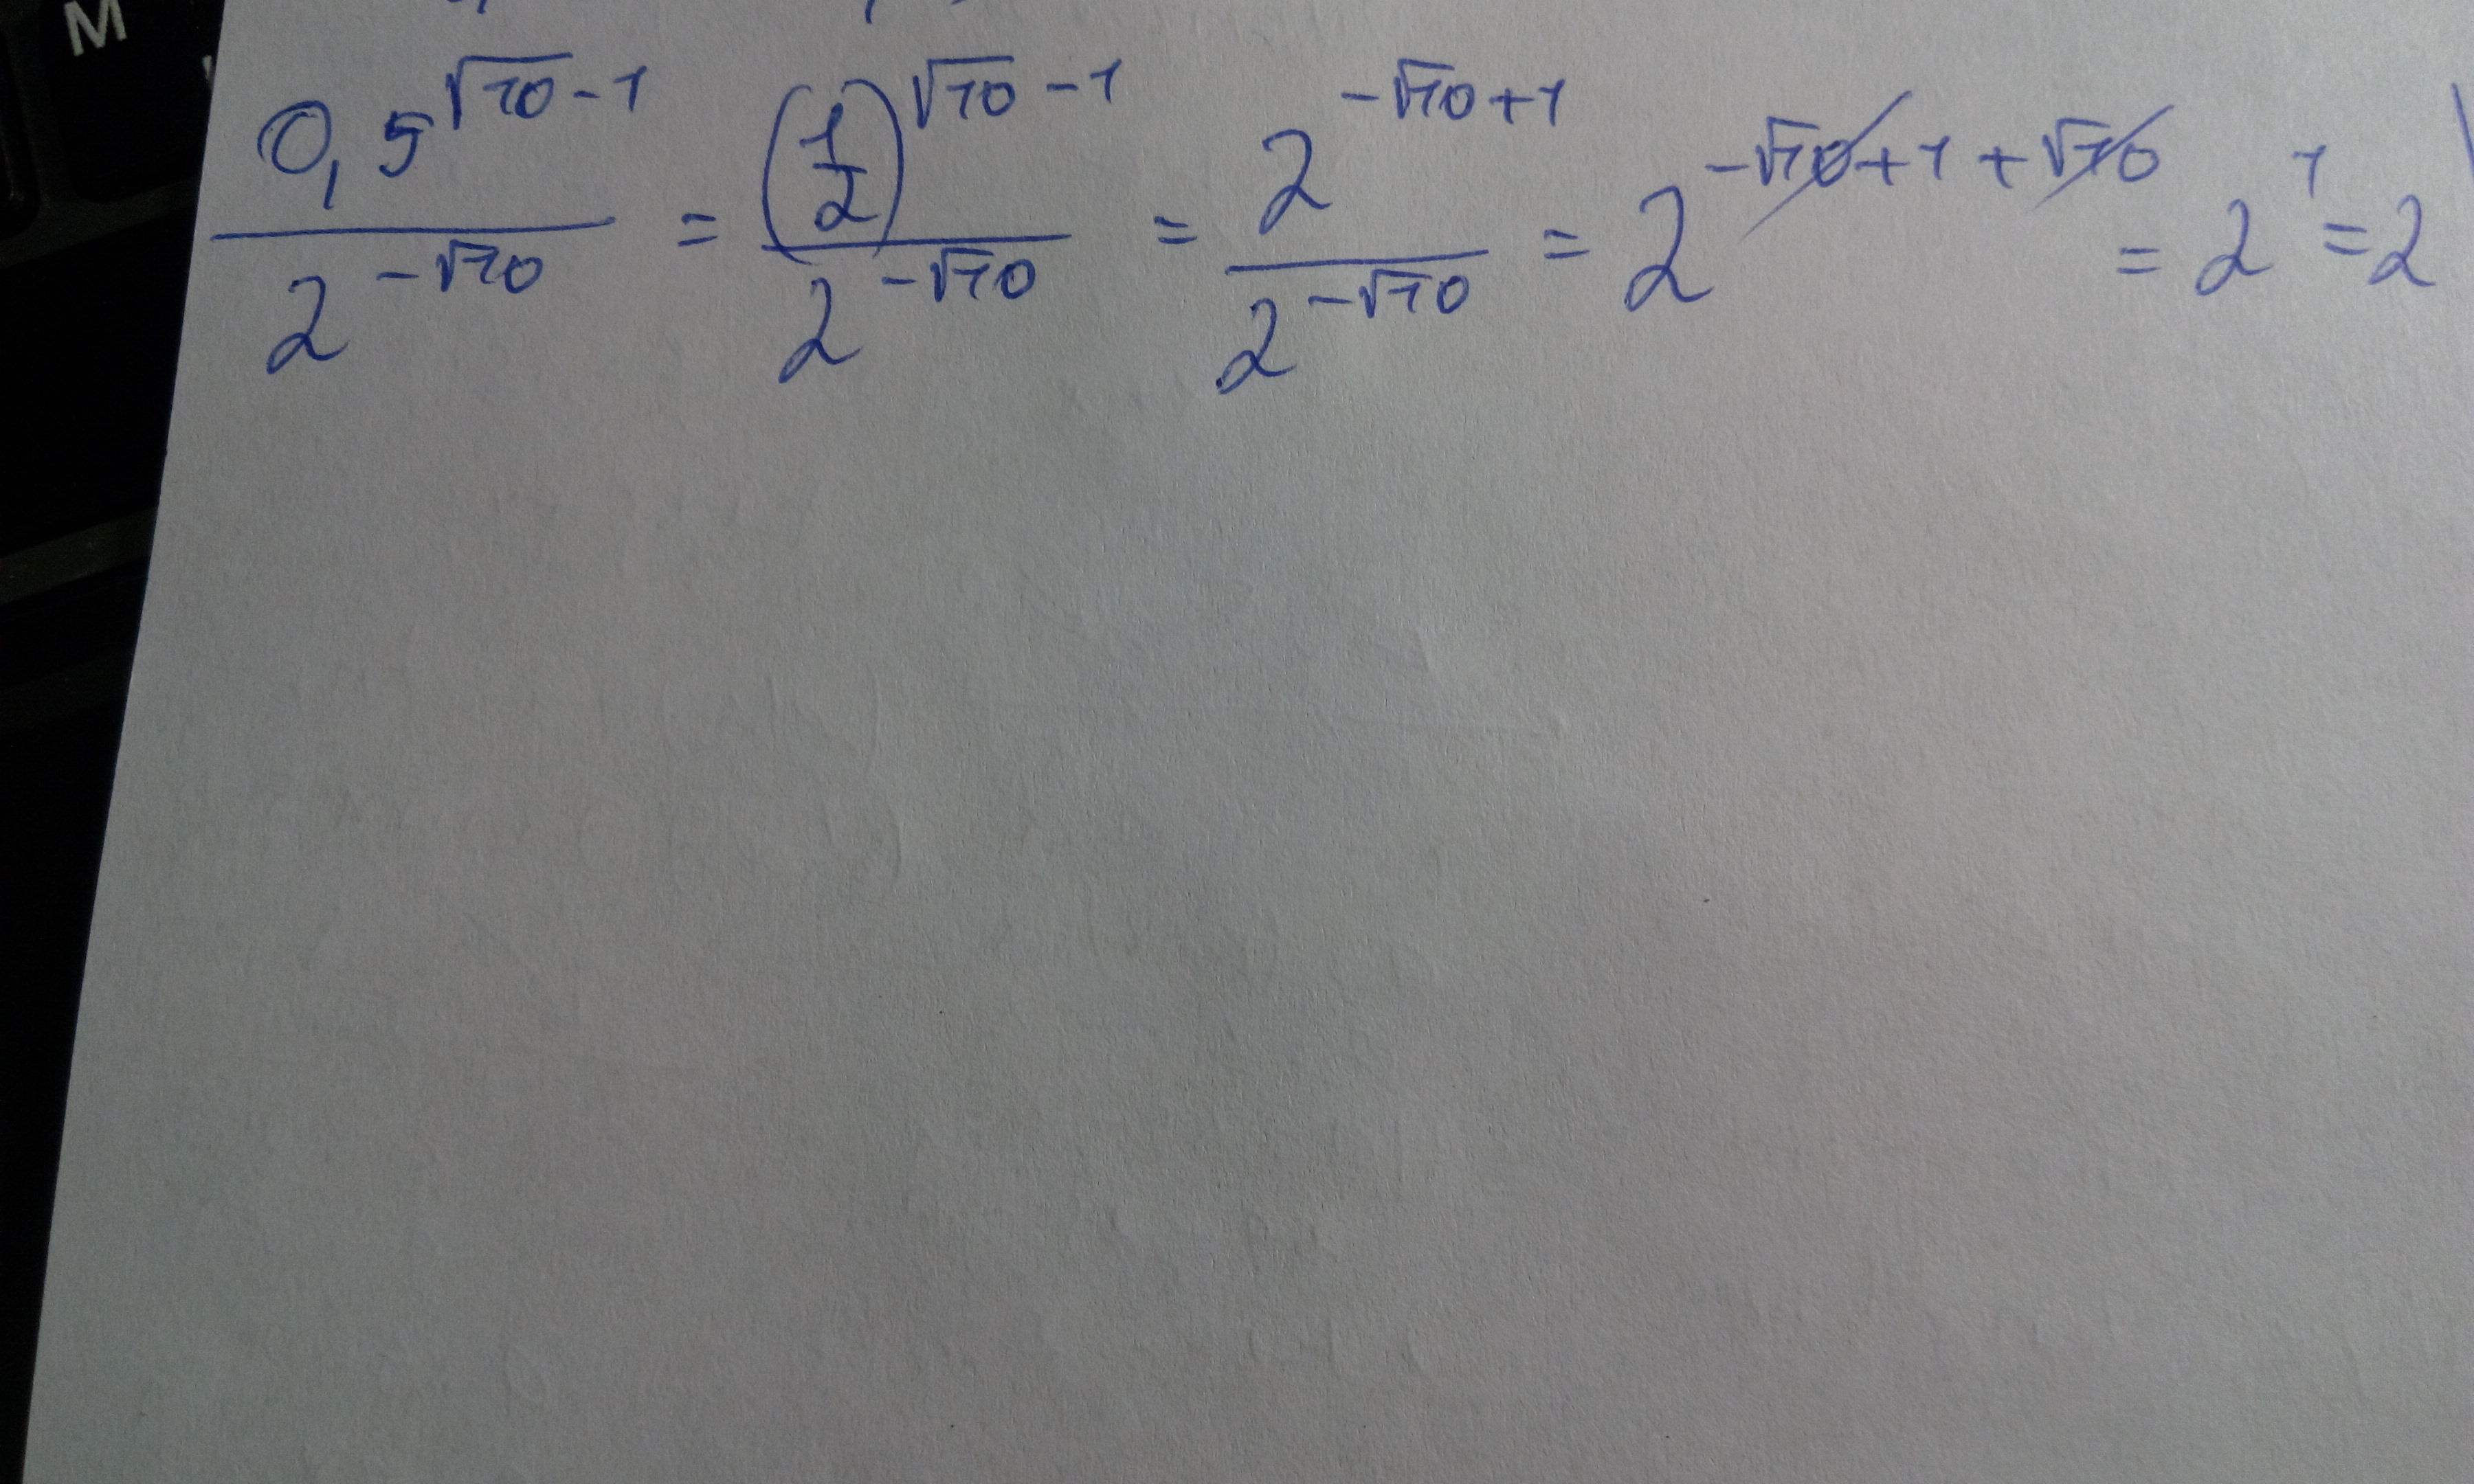 M
0,5^(√10-1) / 2^(-√10) = (1/2)^(√10-1) / 2^(-√10) = 2^(-√10+1) / 2^(-√10) = 2^(-√10+1+√10) = 2^1 = 2